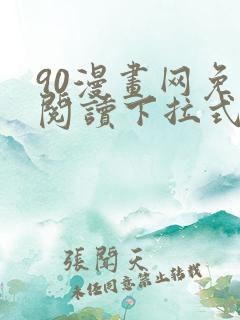 90漫畫网免
閱讀下拉式
張開天
未经同意禁止转载